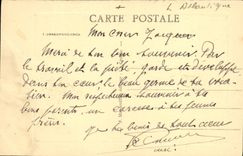 CARTE POSTALE
CORRESPONDANCE
Mon cher Jacques
Merci de ton bon souvenir. Par
le travail et la piété garde et développe
dans ton cœur le beau germe de ta voca-
tion. Mon respectueux souvenir à tes
bons parents, un caresse à tes jeunes
frères.
que Dieu bénis de tout cœur